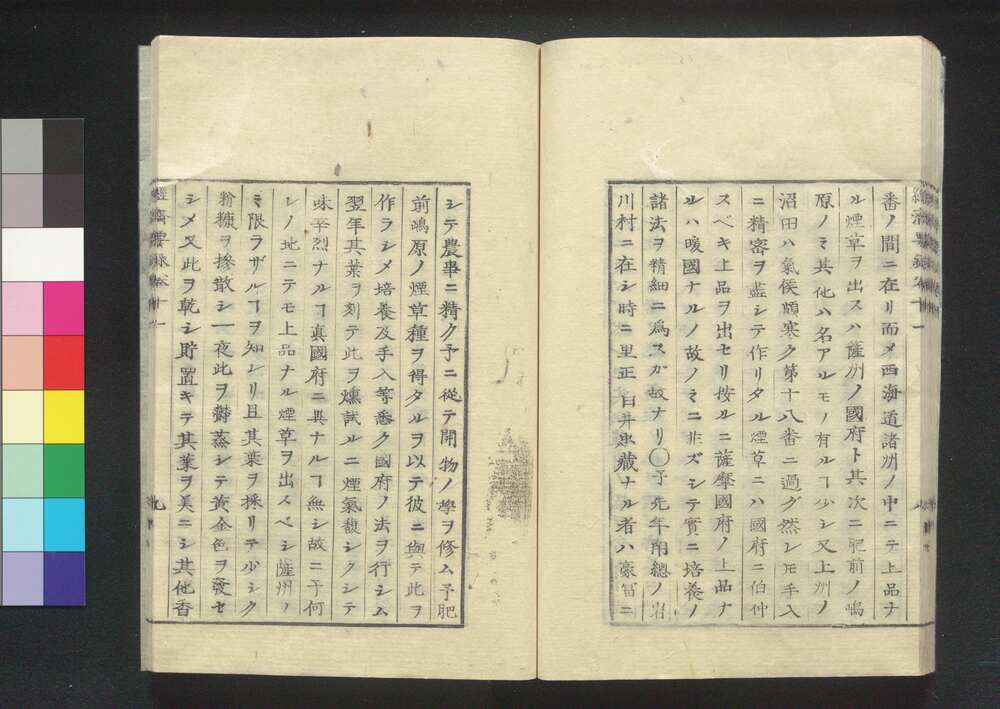 番ノ間ニ在リ而メ西海道諸州ノ中ニテ上品ナ
ル煙草ヲ出スハ薩州ノ國府ト其次ニ肥前ノ嶋
原ノミ其他ハ名アルモノ有ルヿ少シ又上州ノ
沼田ハ氣候頗寒ク第十八番ニ過グ然レ𪜈手入
ニ精密ヲ盡シテ作リタル煙草ニハ國府ニ伯仲
スベキ上品ヲ出セリ按ルニ薩摩國府ノ上品ナ
ルハ暖國ナルノ故ノミニ非ズシテ實ニ培養ノ
諸法ヲ精細ニ爲スガ故ナリ〇予先年南總ノ岩
川村ニ在シ時ニ里正白井忠藏ナル者ハ豪冨ニ
シテ農事ニ精ク予ニ從テ開物ノ學ヲ修ム予肥
前嶋原ノ煙草種ヲ得タルヲ以テ彼ニ與テ此ヲ
作ラシメ培養及手入等悉ク國府ノ法ヲ行シム
翌年其葉ヲ刻テ此ヲ燻試ルニ煙氣馥シクシテ
味辛烈ナルヿ眞國府ニ異ナルヿ無シ故ニ于何
レノ地ニテモ上品ナル煙草ヲ出スベシ薩州ノ
ミ限ラザルヿヲ知レリ且其葉ヲ採リテ少シク
粉糠ヲ摻散シ一夜此ヲ欝蒸シテ黄金色ヲ發セ
シメ又此ヲ乾シ貯置キテ其葉ヲ美ニシ其他香
經濟要録卷十一
九